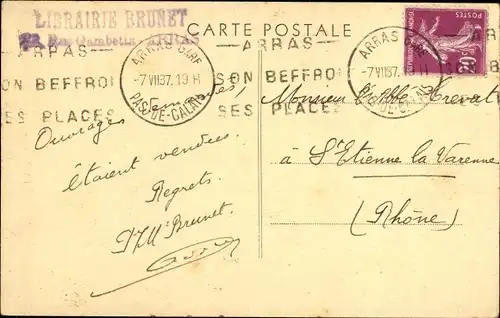 LIBRAIRIE BRUNET
22, Rue Gambetta - ARRAS
CARTE POSTALE
ARRAS
SON BEFFROI
SES PLACES
ARRAS GARE
-7 VII 37. 19 H
PAS-DE-CALAIS
ARRAS
SON BEFFROI
SES PLACES
ARRAS GARE
-7 VII 37.
PAS-DE-CALAIS
POSTES
20c
Monsieur l'Abbé
à St Etienne la Varenne
(Rhône)
Ouvrages
étaient vendus.
Regrets.
Brunet.